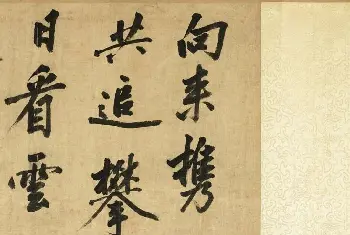 向来携
共追攀
日看雲